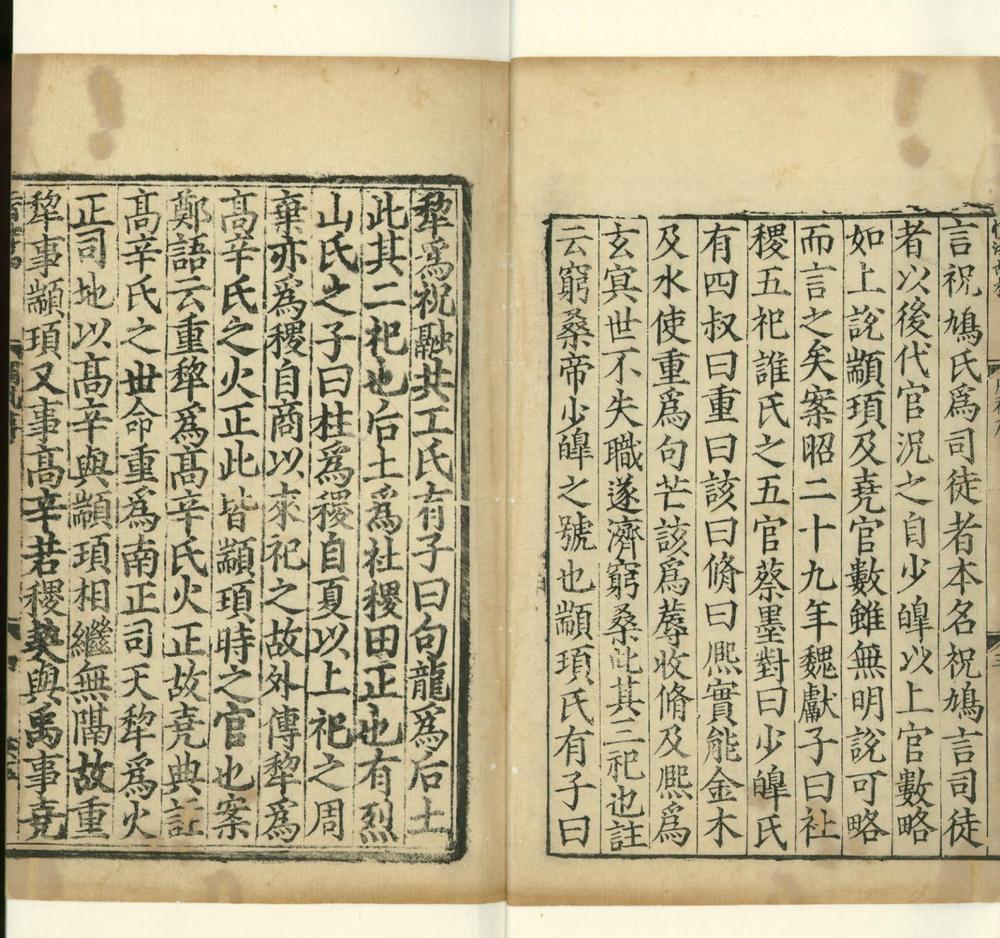 言祝鳩氏爲司徒者本名祝鳩言司徒
者以後代官況之自少皥以上官數略
如上說顓頊及堯官數雖無明說可略
而言之矣案昭二十九年魏獻子曰社
稷五祀誰氏之五官蔡墨對曰少皥氏
有四叔曰重曰該曰脩曰熈實能金木
及水使重爲句芒該爲蓐收脩及熈爲
玄冥世不失職遂濟窮桑此其三祀也註
云窮桑帝少皥之號也顓頊氏有子曰
犂爲祝融共工氏有子曰句龍爲后土
此其二祀也后土爲社稷田正也有烈
山氏之子曰柱爲稷自夏以上祀之周
棄亦爲稷自商以來祀之故外傳犂爲
髙辛氏之火正此皆顓頊時之官也案
鄭語云重犂爲髙辛氏火正故堯典註
髙辛氏之世命重爲南正司天犂爲火
正司地以髙辛與顓頊相繼無隔故重
犂事顓頊又事髙辛若稷契與禹事堯